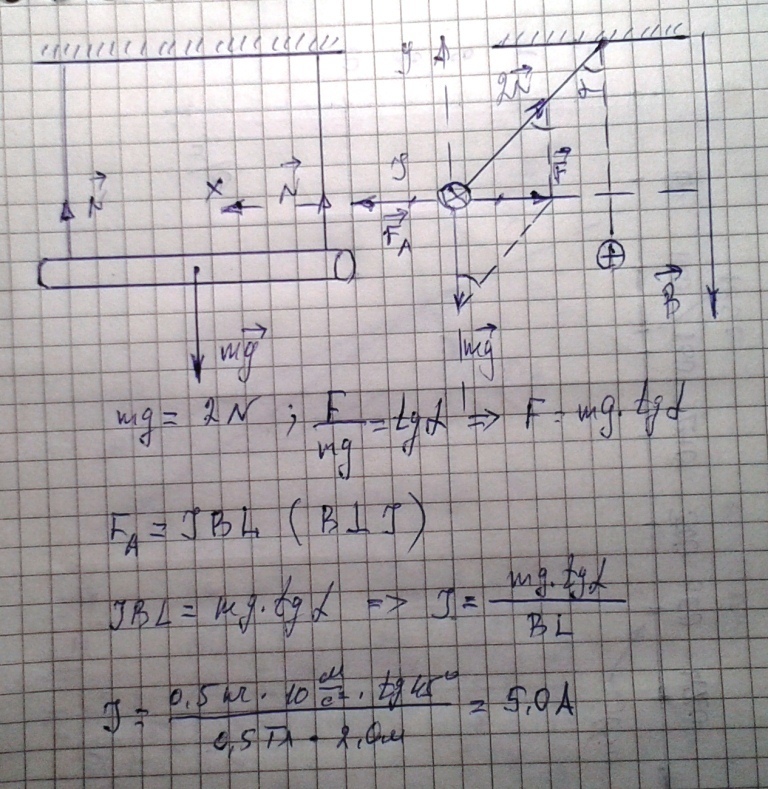 y
2N⃗ α
N⃗ x N⃗ J F⃗
F⃗A
B⃗
mg⃗ mg⃗
mg = 2N ; F/mg = tgα => F = mg·tgα
FA = JBL (B⊥J)
JBL = mg·tgα => J = mg·tgα/BL
J = 0,5 кг · 10 м/с² · tg45°/0,5 Тл · 2,0м = 5,0А